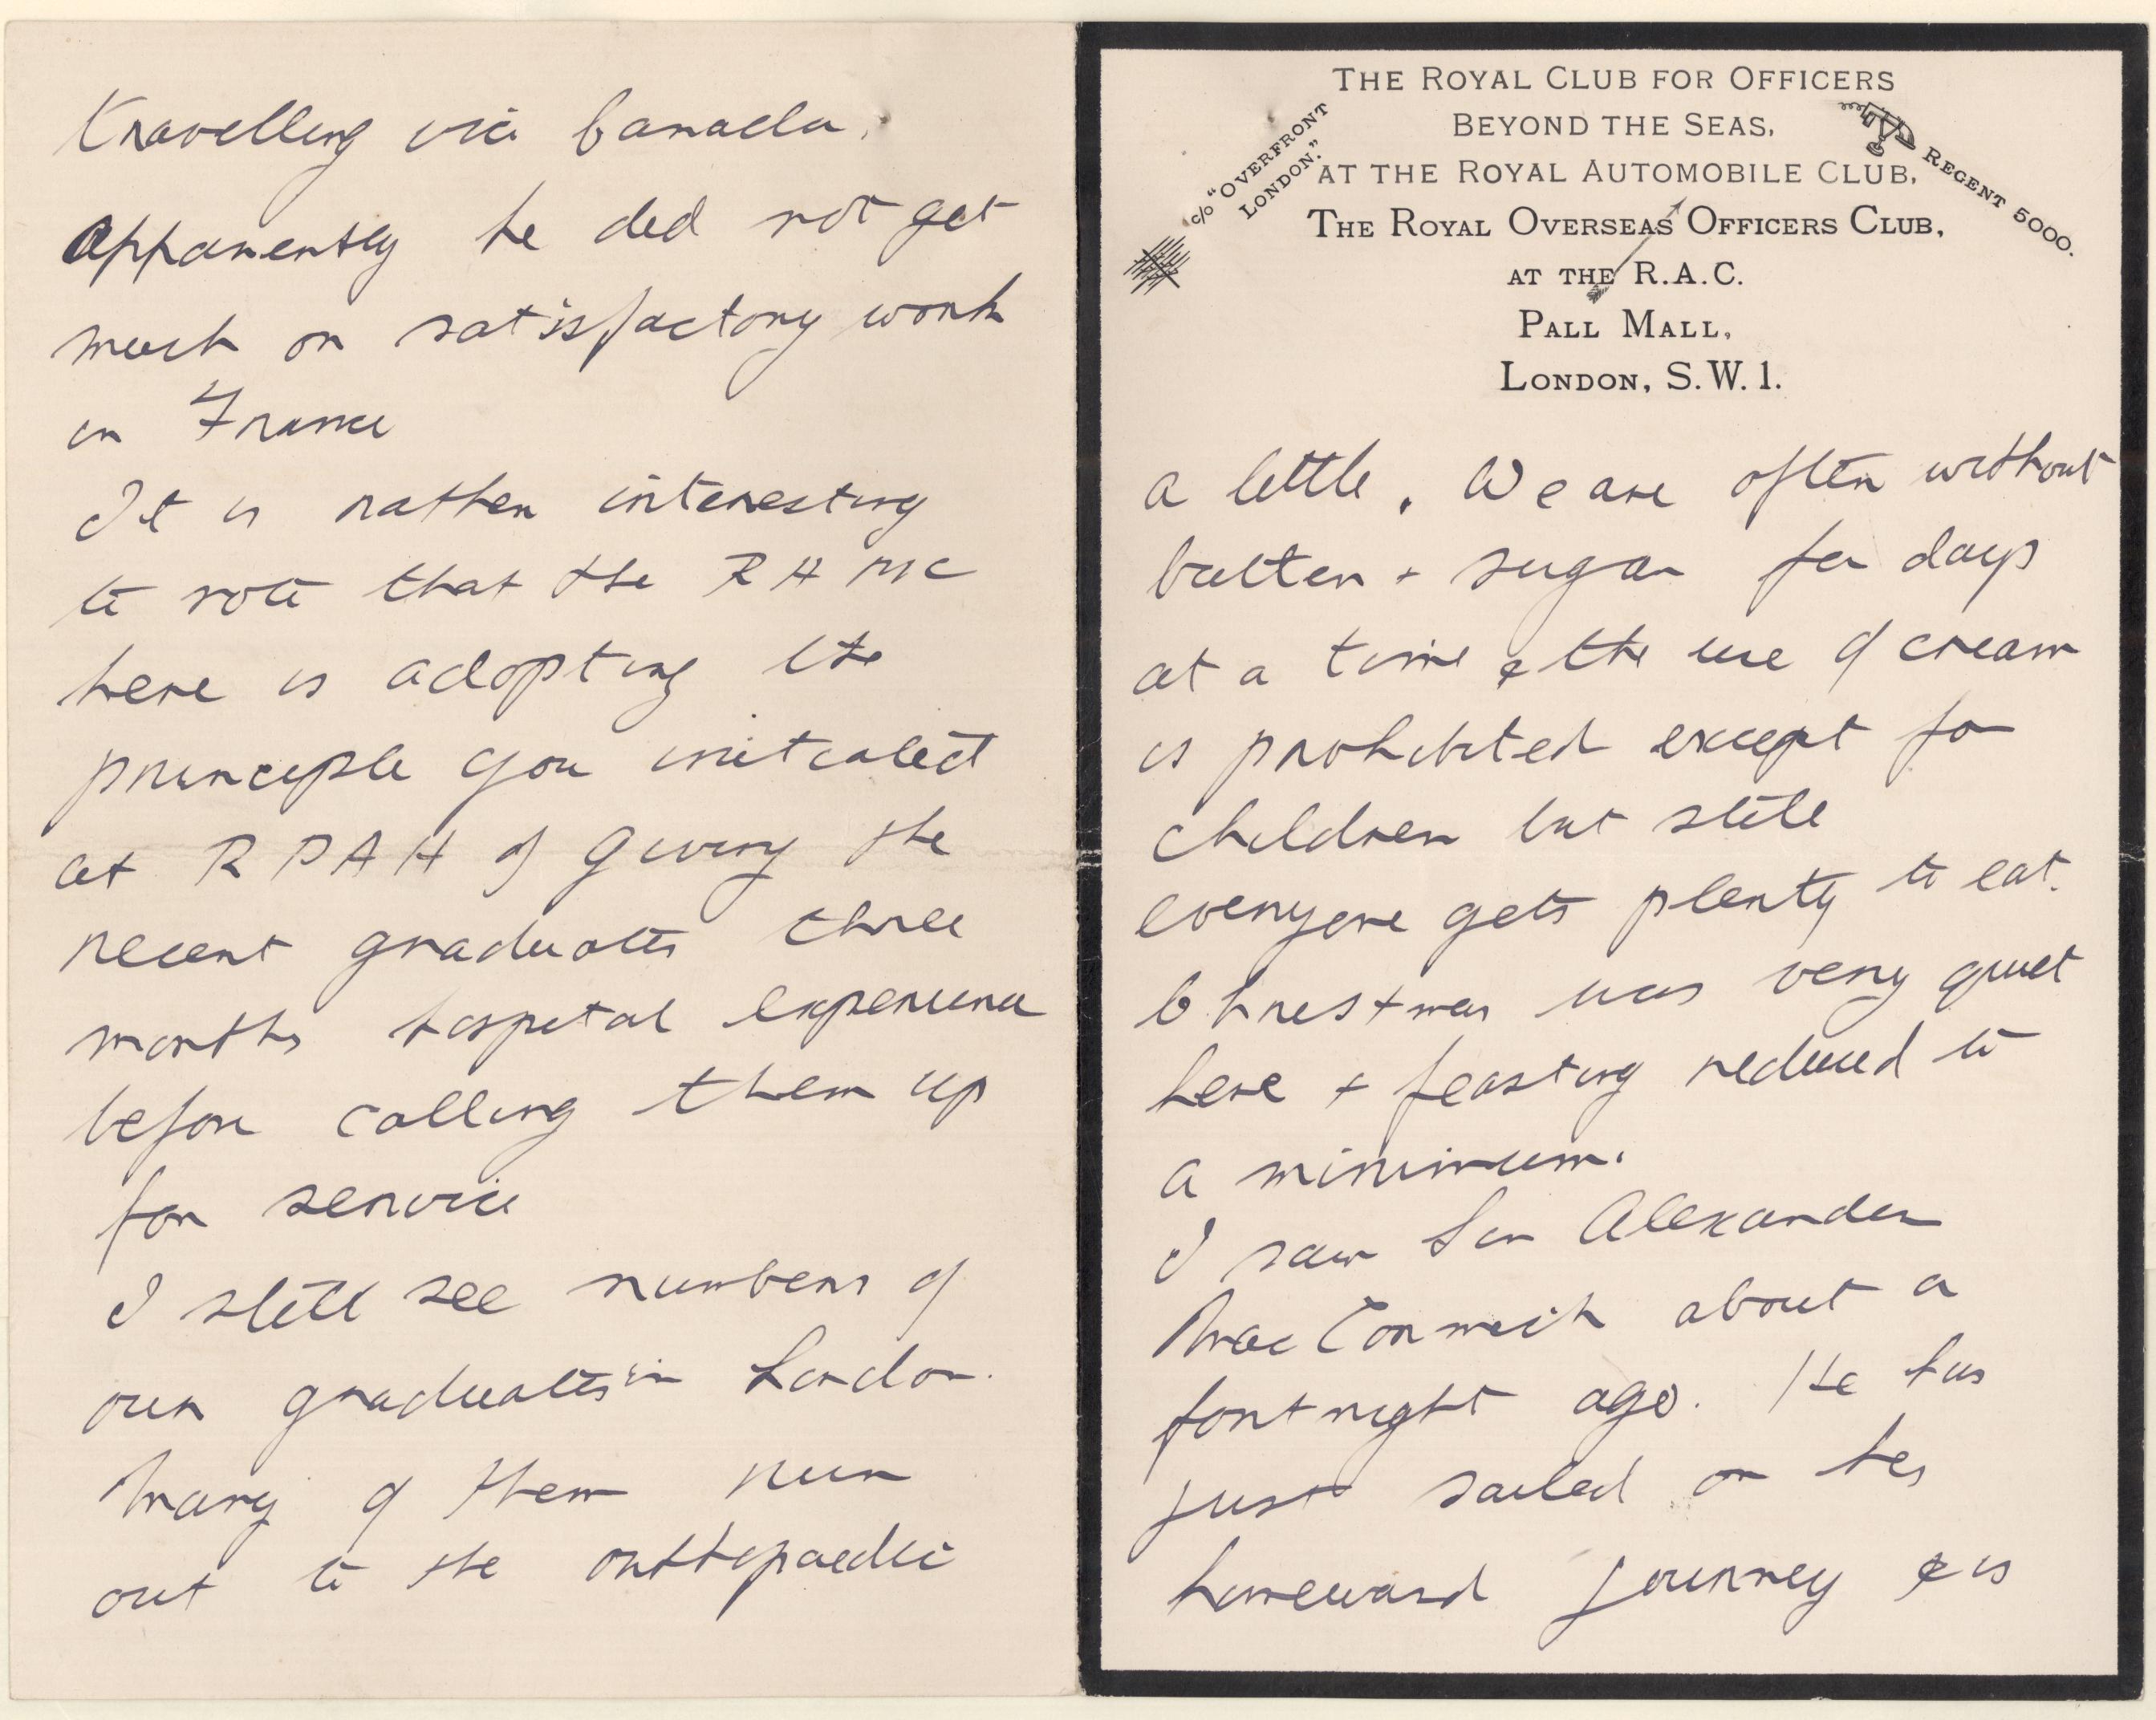 THE ROYAL CLUB FOR OFFICERS
BEYOND THE SEAS,
AT THE ROYAL AUTOMOBILE CLUB,
THE ROYAL OVERSEAS OFFICERS CLUB,
AT THE R.A.C.
PALL MALL,
LONDON, S.W.1.
c/o "OVERFRONT
LONDON."
REGENT 5000.
a little. We are often without
butter + sugar for days
at a time & the use of cream
is prohibited except for
children but still
everyone gets plenty to eat.
Christmas was very quiet
here + feasting reduced to
a minimum.
I saw Sir Alexander
MacCormick about a
fortnight ago. He has
just sailed on his
homeward journey & is
travelling via Canada.
Apparently he did not get
much or satisfactory work
in France
It is rather interesting
to note that the R A M C
here is adopting the
principle you initiated
at R P A H of giving the
recent graduates three
months hospital experience
before calling them up
for service
I still see numbers of
our graduates in London.
Many of them run
out to the orthopaedic